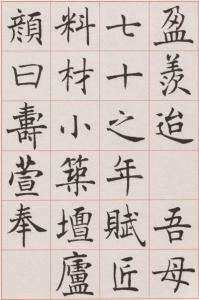 盈羨迨吾母
七十之年賦匠
料材小築壇廬
顏曰壽萱奉